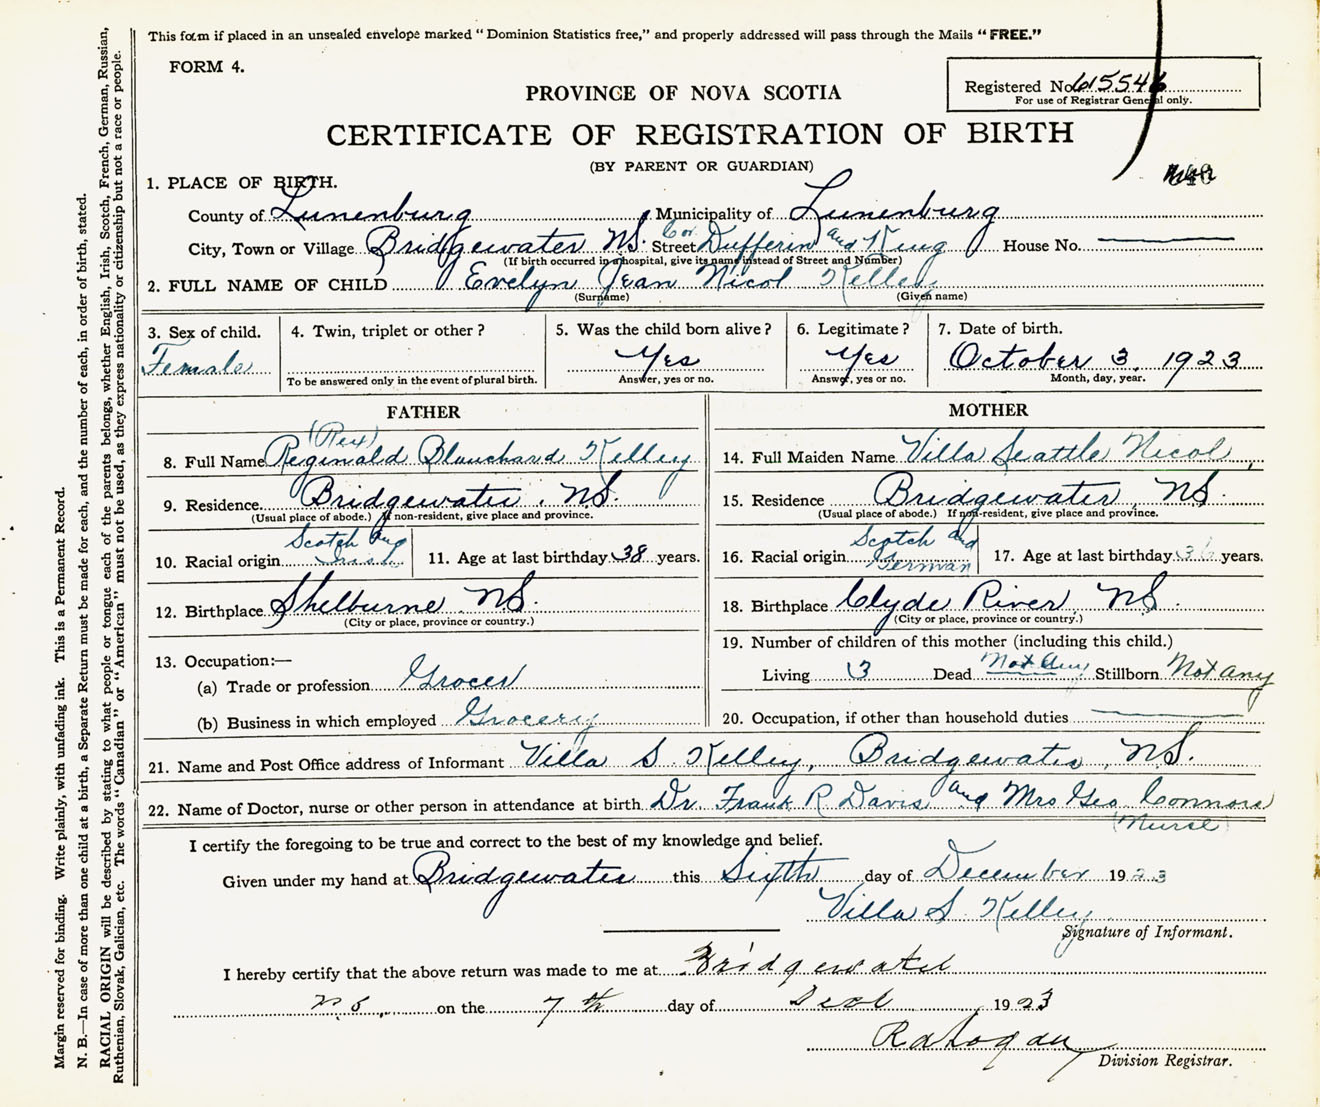 This form if placed in an unsealed envelope marked "Dominion Statistics free," and properly addressed will pass through the Mails "FREE."
FORM 4.
Registered No. 615546
For use of Registrar General only.
PROVINCE OF NOVA SCOTIA
CERTIFICATE OF REGISTRATION OF BIRTH
(BY PARENT OR GUARDIAN)
1. PLACE OF BIRTH.
County of Lunenburg, Municipality of Lunenburg
City, Town or Village Bridgewater NS. Street Cor. Dufferin and King House No.
(If birth occurred in a hospital, give its name instead of Street and Number)
2. FULL NAME OF CHILD Evelyn Jean Nicol Kelley
(Surname) (Given name)
3. Sex of child. Female
4. Twin, triplet or other?
To be answered only in the event of plural birth.
5. Was the child born alive? Yes
Answer, yes or no.
6. Legitimate? Yes
Answer, yes or no.
7. Date of birth. October 3, 1923
Month, day, year.
FATHER
(Rex)
8. Full Name Reginald Blanchard Kelley
9. Residence. Bridgewater, NS.
(Usual place of abode.) If non-resident, give place and province.
10. Racial origin Scotch and Irish
11. Age at last birthday 38 years.
12. Birthplace Shelburne NS.
(City or place, province or country.)
13. Occupation:—
(a) Trade or profession Grocer
(b) Business in which employed Grocery
MOTHER
14. Full Maiden Name Villa Seattle Nicol,
15. Residence Bridgewater NS.
(Usual place of abode.) If non-resident, give place and province.
16. Racial origin Scotch and German
17. Age at last birthday years.
18. Birthplace Clyde River, NS.
(City or place, province or country.)
19. Number of children of this mother (including this child.)
Living 3 Dead Not Any Stillborn Not any
20. Occupation, if other than household duties
21. Name and Post Office address of Informant Villa S. Kelley, Bridgewater, NS.
22. Name of Doctor, nurse or other person in attendance at birth Dr. Frank R Davis and Mrs Geo Connors
(Nurse)
I certify the foregoing to be true and correct to the best of my knowledge and belief.
Given under my hand at Bridgewater this Sixth day of December 1923
Villa S. Kelley
Signature of Informant.
I hereby certify that the above return was made to me at Bridgewater
N.S. on the 7th day of Dec 1923
Division Registrar.
Margin reserved for binding. Write plainly, with unfading ink. This is a Permanent Record.
N. B.—In case of more than one child at a birth, a Separate Return must be made for each, and the number of each, in order of birth, stated.
RACIAL ORIGIN will be described by stating to what people or tongue each of the parents belongs, whether English, Irish, Scotch, French, German, Russian,
Ruthenian, Slovak, Galician, etc. The words "Canadian" or "American" must not be used, as they express nationality or citizenship but not a race or people.